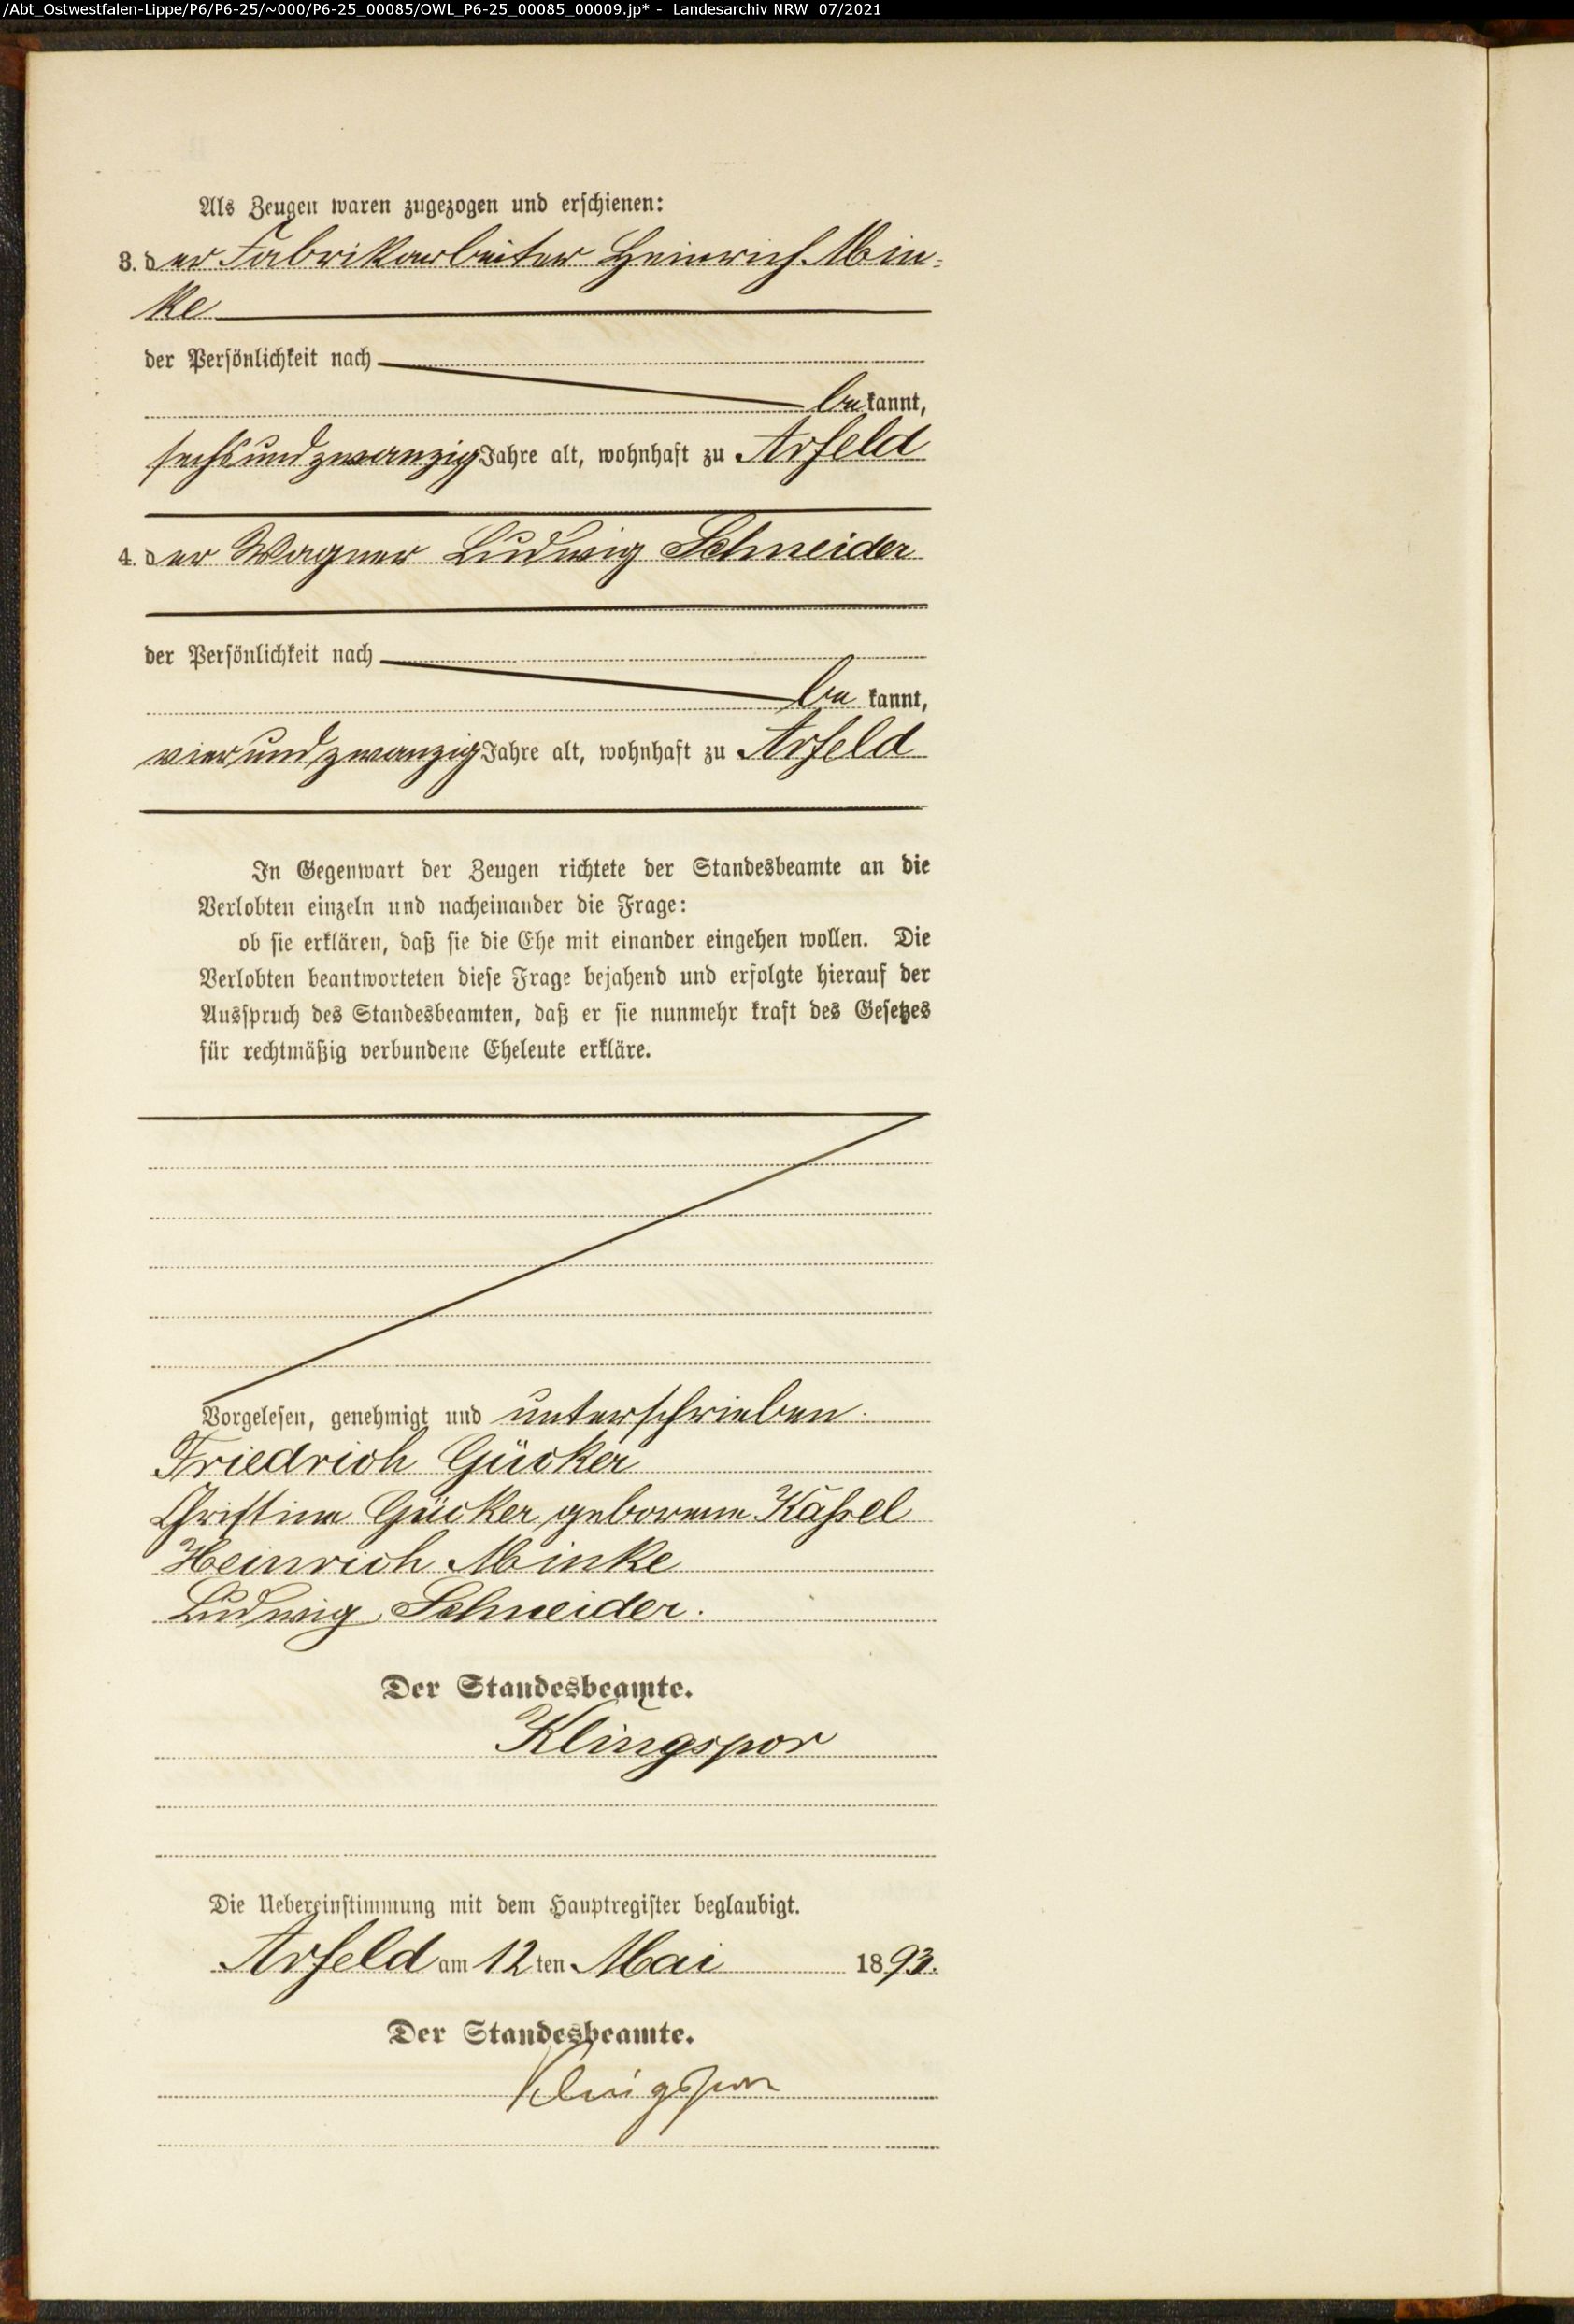 /Abt_Ostwestfalen-Lippe/P6/P6-25/~000/P6-25_00085/OWL_P6-25_00085_00009.jp* - Landesarchiv NRW 07/2021
Als Zeugen waren zugezogen und erschienen:
3. der Fabrikarbeiter Heinrich Min=
ke
der Persönlichkeit nach
bekannt,
sechsundzwanzig Jahre alt, wohnhaft zu Arfeld
4. der Wagner Ludwig Schneider
der Persönlichkeit nach
bekannt,
vierundzwanzig Jahre alt, wohnhaft zu Arfeld
In Gegenwart der Zeugen richtete der Standesbeamte an die
Verlobten einzeln und nacheinander die Frage:
ob sie erklären, daß sie die Ehe mit einander eingehen wollen. Die
Verlobten beantworteten diese Frage bejahend und erfolgte hierauf der
Ausspruch des Standesbeamten, daß er sie nunmehr kraft des Gesetzes
für rechtmäßig verbundene Eheleute erkläre.
Vorgelesen, genehmigt und unterschrieben.
Friedrich Gücker
Christine Gücker geborene Käßel
Heinrich Minke
Ludwig Schneider.
Der Standesbeamte.
Klingspor
Die Uebereinstimmung mit dem Hauptregister beglaubigt.
Arfeld am 12ten Mai 1893.
Der Standesbeamte.
Klingspor